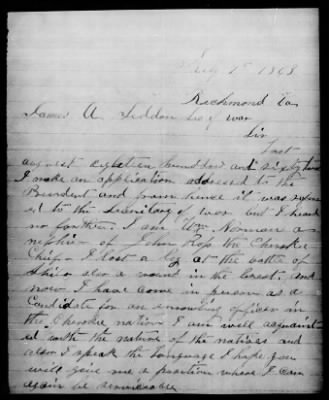 1863
Richmond Va
James A. Seddon Sec of war
Sir
Last
august eighteen hundred and sixty two
I make an application addressed to the
President and from hence it was refer
ed to the Secretary of war but I heard
no further. I am Wm Norman a
nephew of John Ross the Cherokee
Chief I lost a leg at the battle of
also a wound in the breast. and
now I have come in person as a
Candidate for an enrolling officer in
the Cherokee nation I am well acquaint
ed with the nature of the natives and
also I speak the Language I hope you
will give me a position where I can
again be serviceable